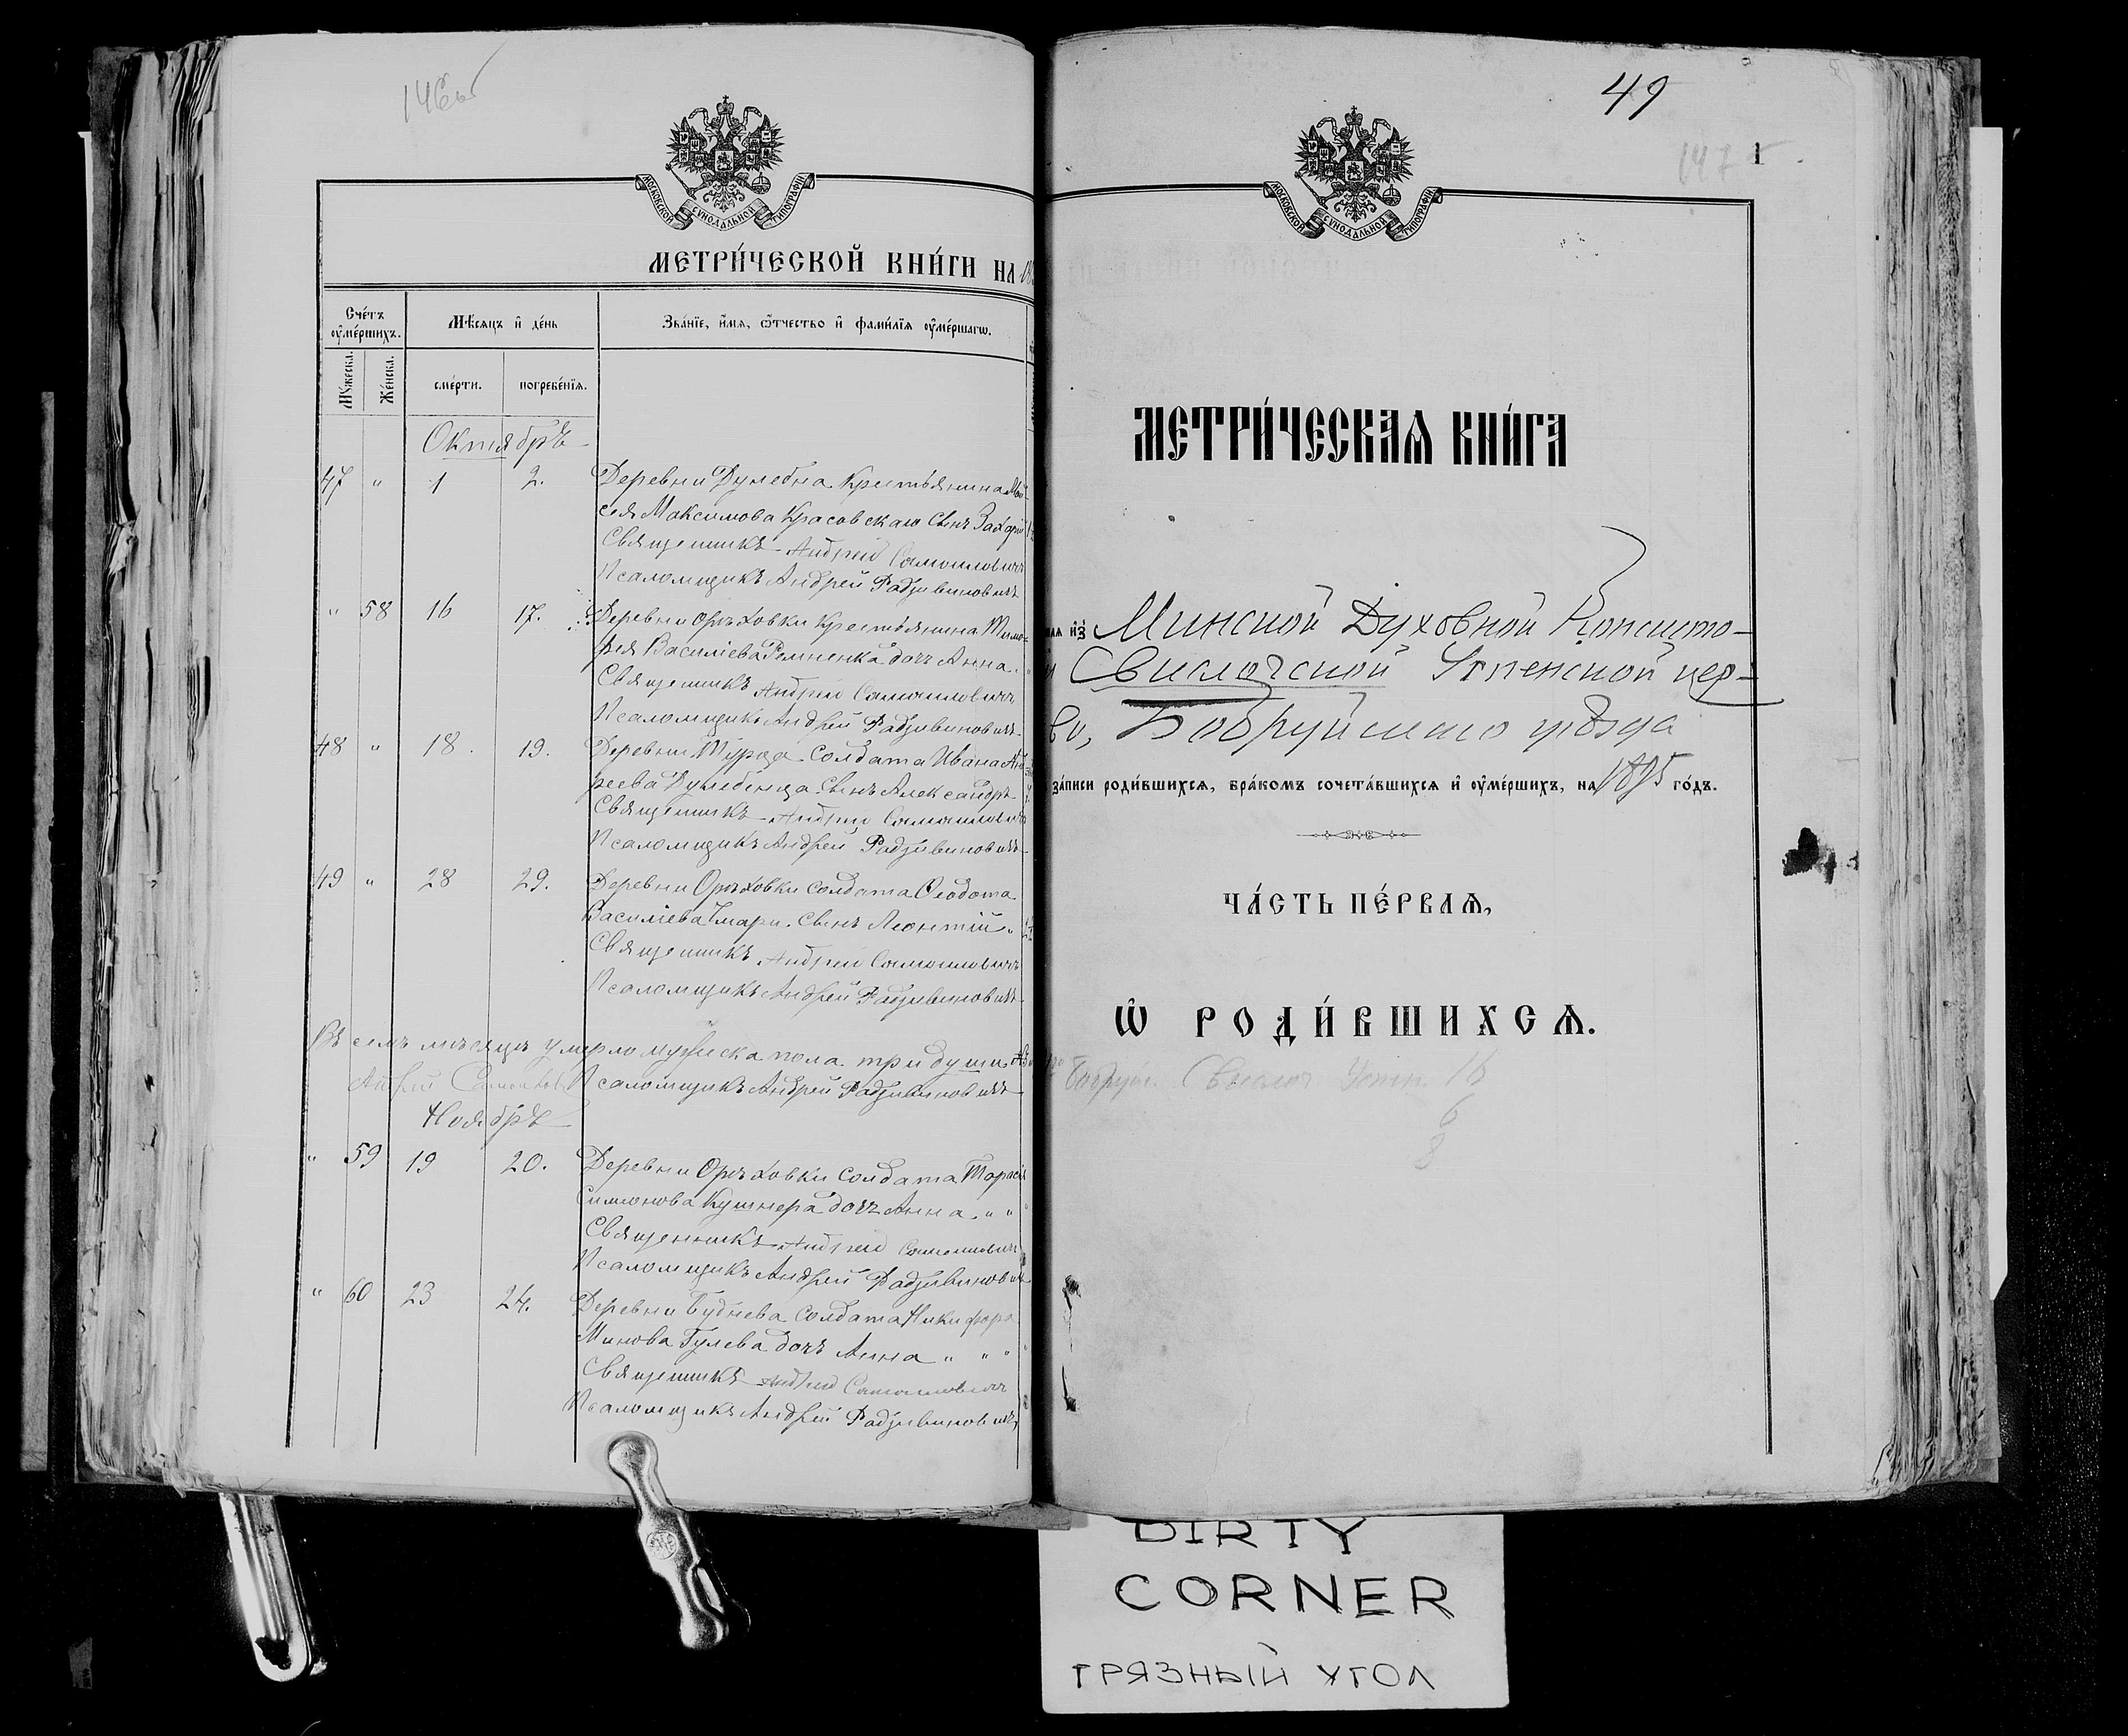 146об
МОСКОВСКОЙ СѴНОДАЛЬНОЙ ТИПОГРАФІИ
МЕТРИ́ЧЕСКОЙ КНИ́ГИ НА 18
Сче́тъ ᲂу҆ме́ршихъ.
Мѣ́сѧцъ и҆ де́нь
Зва́нїе, и҆́мѧ, ѻ҆́тчество и҆ фами́лїѧ ᲂу҆ме́ршагѡ.
Мꙋ́жеска.
Же́нска.
сме́рти.
погребе́нїѧ.
Октябрь
47 " 1 2. Деревни Дулебна Крестьянина Мои-
сея Максимова Красовскаго сынъ Захарій
Священникъ Андрей Самойловичъ
Псаломщикъ Андрей Радзивиновичъ
" 58 16 17. Деревни Орѣховки Крестьянина Тимо-
фея Василіева Ремненка дочь Анна.
Священникъ Андрей Самойловичъ
Псаломщикъ Андрей Радзивиновичъ
48 " 18. 19. Деревни Турца солдата Ивана Анд
реева Дулебенца сынъ Александръ
Священникъ Андрей Самойловичъ
Псаломщикъ Андрей Радзивиновичъ
49 " 28 29. Деревни Орѣховки солдата Ѳеодота
Василіева сынъ Леонтій "
Священникъ Андрей Самойловичъ
Псаломщикъ Андрей Радзивиновичъ
Въ семъ мѣсяцѣ умерло мужеска пола три души,
Андрей Самойлович Псаломщикъ Андрей Радзивиновичъ
Ноябрь
" 59 19 20. Деревни Орѣховки солдата Тарасія
Симонова Кушнера дочь Анна. " "
Священникъ Андрей Самойловичъ
Псаломщикъ Андрей Радзивиновичъ
" 60 23 24. Деревни Буднева солдата Никифора
Минова Гулева дочь Анна " " "
Священникъ Андрей Самойловичъ
Псаломщикъ Андрей Радзивиновичъ
49
147
1
МОСКОВСКОЙ СѴНОДАЛЬНОЙ ТИПОГРАФІИ
МЕТРИ́ЧЕСКАѦ КНИ́ГА
ная и҆з̾ Минской Духовной Консисто-
и Свислочской Успенской цер-
во, Бобруйскаго уѣзда
за́писи роди́вшихсѧ, бра́комъ сочета́вшихсѧ и҆ ᲂу҆ме́ршихъ, на 1895 го́дъ.
ЧА́СТЬ ПЕ́РВАѦ,
Ѡ҆ РОДИ́ВШИХСѦ.
Бобруй. Свислоч Успен. 16
6
8
DIRTY
CORNER
ГРЯЗНЫЙ УГОЛ